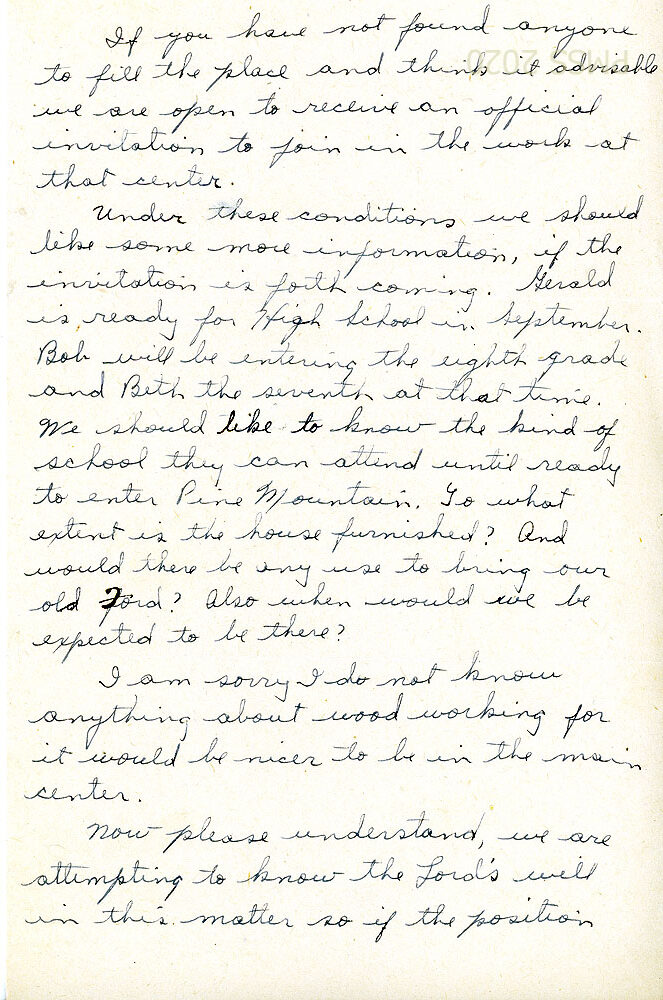 If you have not found anyone
to fill the place and think it advisable
we are open to receive an official
invitation to join in the work at
that center.
Under these conditions we should
like some more information, if the
invitation is forth coming. Gerald
is ready for High School in September.
Bob will be entering the eighth grade
and Beth the seventh at that time.
We should like to know the kind of
school they can attend until ready
to enter Pine Mountain. To what
extent is the house furnished? And
would there be any use to bring our
old Ford? Also when would we be
expected to be there?
I am sorry I do not know
anything about wood working for
it would be nicer to be in the main
center.
Now please understand, we are
attempting to know the Lord's will
in this matter so if the position
PMSS 2020